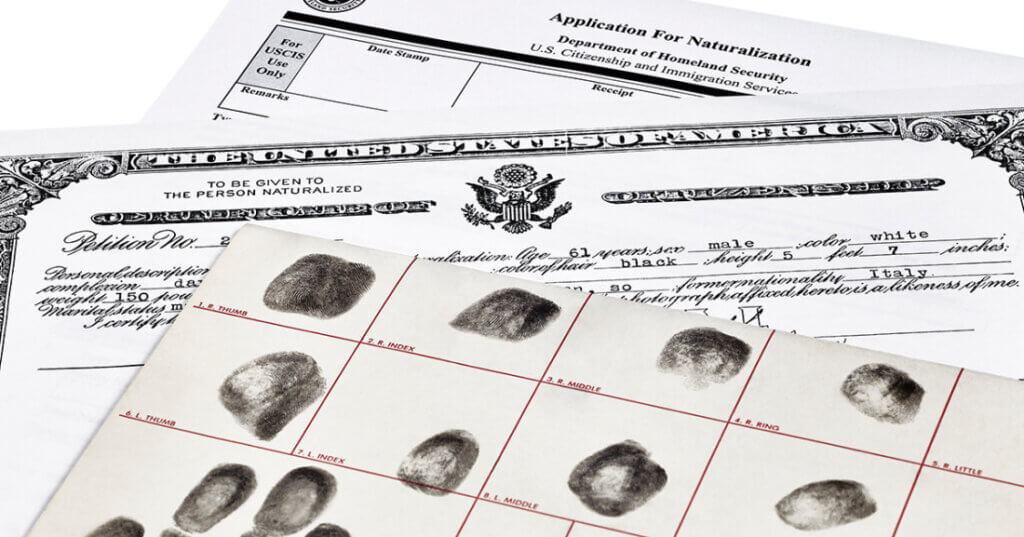 Application For Naturalization
Department of Homeland Security
U.S. Citizenship and Immigration Services
For
USCIS
Use
Only
Date Stamp
Receipt
Remarks
THE UNITED STATES OF AMERICA
TO BE GIVEN TO
THE PERSON NATURALIZED
CERTIFICATE OF
CITIZENSHIP
Petition No. 2
alization: Age 61 years; sex male color white
Personal description
color of hair black height 5 feet 7 inches;
complexion da
so former nationality Italy
weight 150 pou
photograph affixed hereto is a likeness of me.
Marital status m
I certify
1. R. THUMB
2. R. INDEX
3. R. MIDDLE
4. R. RING
5. R. LITTLE
6. L. THUMB
7. L. INDEX
8. L. MIDDLE